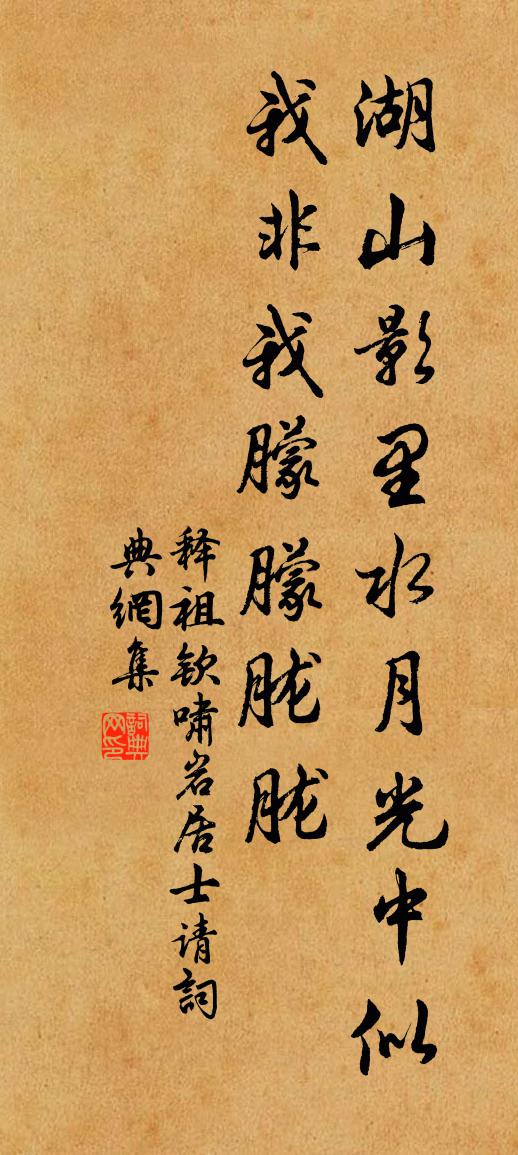 湖山影里水月光中似
我非我朦朦胧胧
释祖钦啸岩居士请詞
典網集
詞典网印